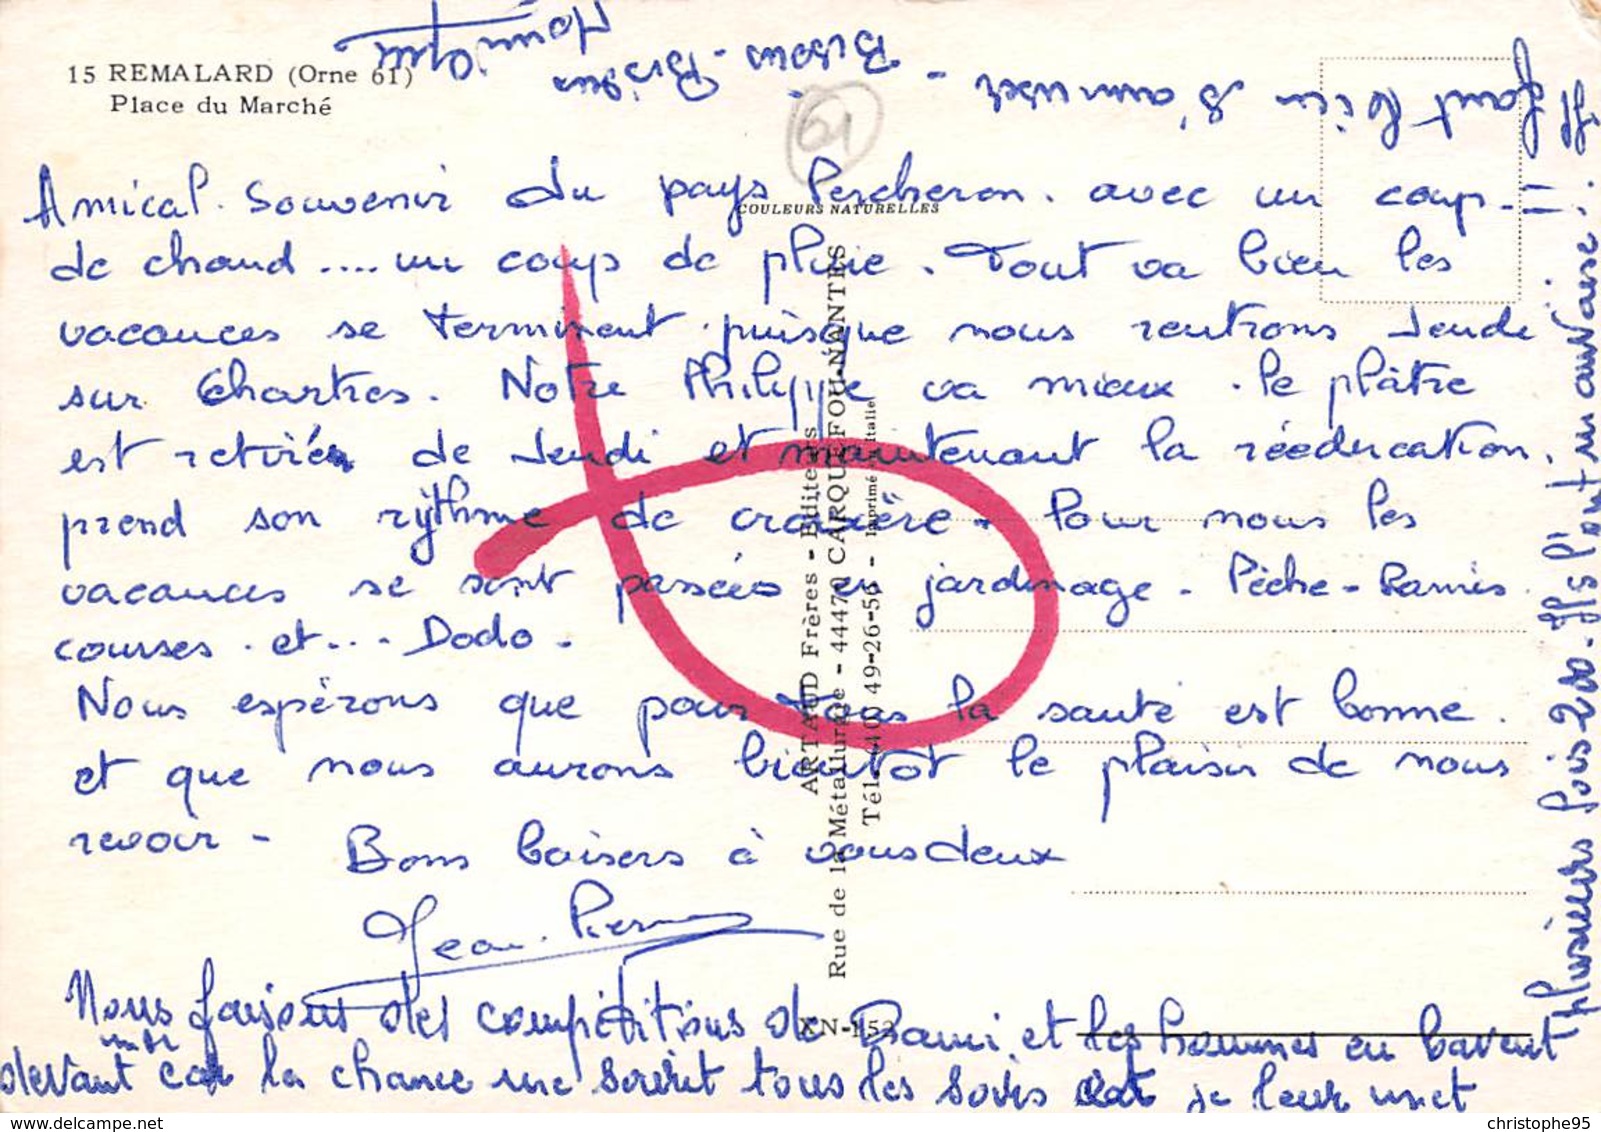 15 REMALARD (Orne 61)
Place du Marché
61
COULEURS NATURELLES
Amical. Souvenir du pays Percheron. avec un coup-
de chaud .... un coup de pluie. Tout va bien les
vacances se terminent puisque nous rentrons Jeudi
sur Chartres. Notre Philippe va mieux. le plâtre
est retiré de Jeudi et maintenant la rééducation.
prend son rythme de croisière. Pour nous les
vacances se sont passées en jardinage - Pêche - Ramis
courses. et... Dodo.
Nous espérons que pour tous la santé est bonne.
et que nous aurons bientôt le plaisir de nous
revoir - Bons baisers à vous deux
Jean. Pierre
Nous faisons des compétitions de Rami et les hommes en bavent
devant moi car la chance me sourit tous les soirs et je leur met
plusieurs fois 200 - Ils l'ont mauvaise !
Il faut bien s'amuser -
Bisous - Bisous
Monique
ARTAUD Frères - Editeurs
Rue de la Métallurgie - 44470 CARQUEFOU-NANTES
Tél. (40) 49-26-56 - Imprimé en Italie
XN-152
christophe95